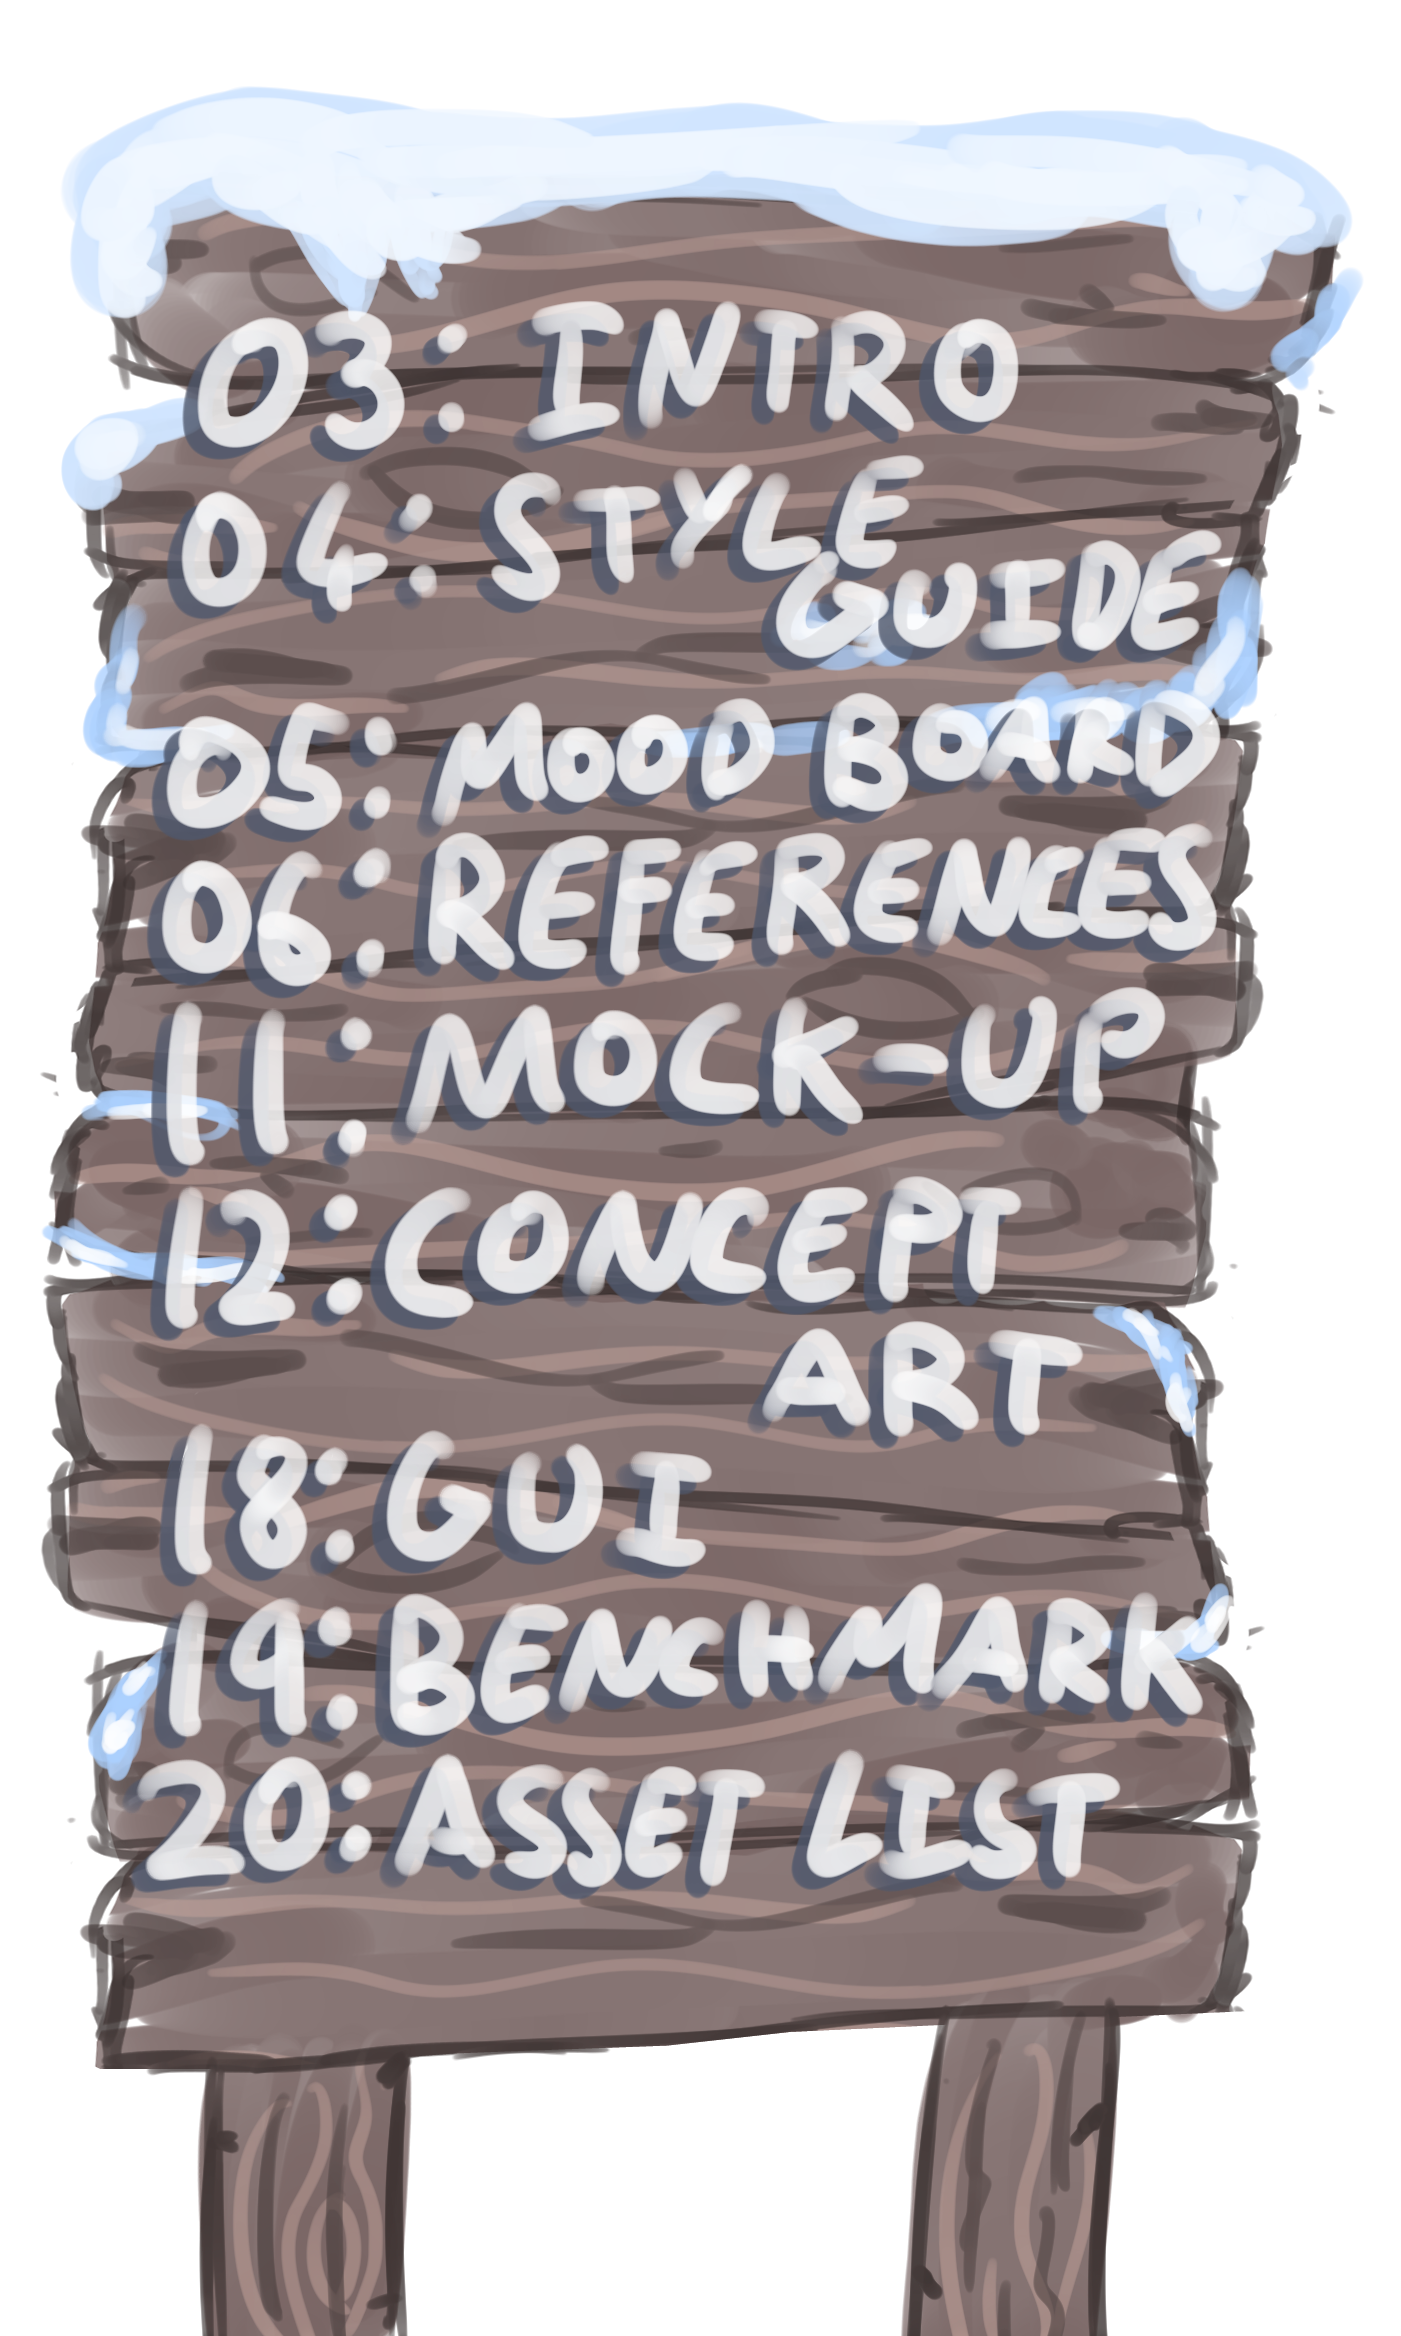 03: INTRO
04: STYLE
GUIDE
05: MOOD BOARD
06: REFERENCES
11: MOCK-UP
12: CONCEPT
ART
18: GUI
19: BENCHMARK
20: ASSET LIST